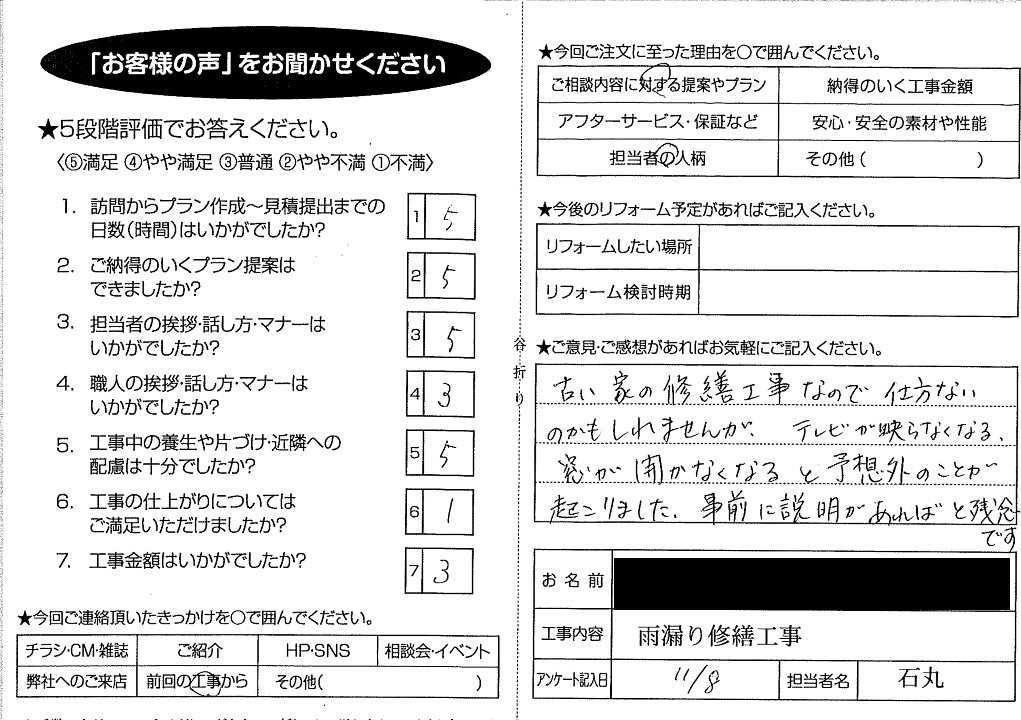 「お客様の声」をお聞かせください
★5段階評価でお答えください。
〈⑤満足 ④やや満足 ③普通 ②やや不満 ①不満〉
1. 訪問からプラン作成～見積提出までの
日数(時間)はいかがでしたか?
1 5
2. ご納得のいくプラン提案は
できましたか?
2 5
3. 担当者の挨拶・話し方・マナーは
いかがでしたか?
3 5
4. 職人の挨拶・話し方・マナーは
いかがでしたか?
4 3
5. 工事中の養生や片づけ・近隣への
配慮は十分でしたか?
5 5
6. 工事の仕上がりについては
ご満足いただけましたか?
6 1
7. 工事金額はいかがでしたか?
7 3
★今回ご連絡頂いたきっかけを〇で囲んでください。
チラシ・CM・雑誌 ご紹介 HP・SNS 相談会・イベント
弊社へのご来店 前回の工事から その他( )
谷折り
★今回ご注文に至った理由を〇で囲んでください。
ご相談内容に対する提案やプラン 納得のいく工事金額
アフターサービス・保証など 安心・安全の素材や性能
担当者の人柄 その他( )
★今後のリフォーム予定があればご記入ください。
リフォームしたい場所
リフォーム検討時期
★ご意見・ご感想があればお気軽にご記入ください。
古い家の修繕工事なので仕方ない
のかもしれませんが、テレビが映らなくなる、
窓が開かなくなると予想外のことが
起こりました。事前に説明があればと残念
です
お名前
工事内容 雨漏り修繕工事
アンケート記入日 11/8 担当者名 石丸